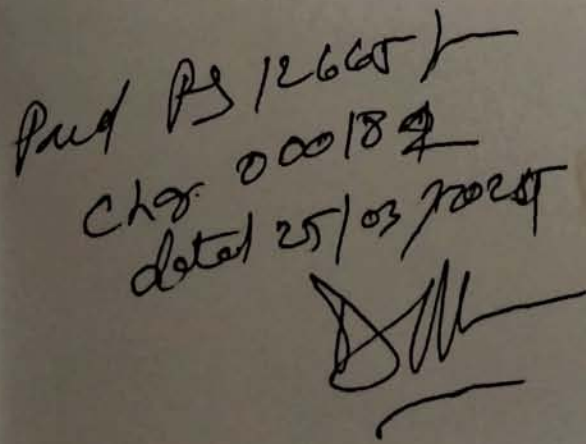 Paid Rs 12665/-
Chq. 000182
dated 25/03/2025